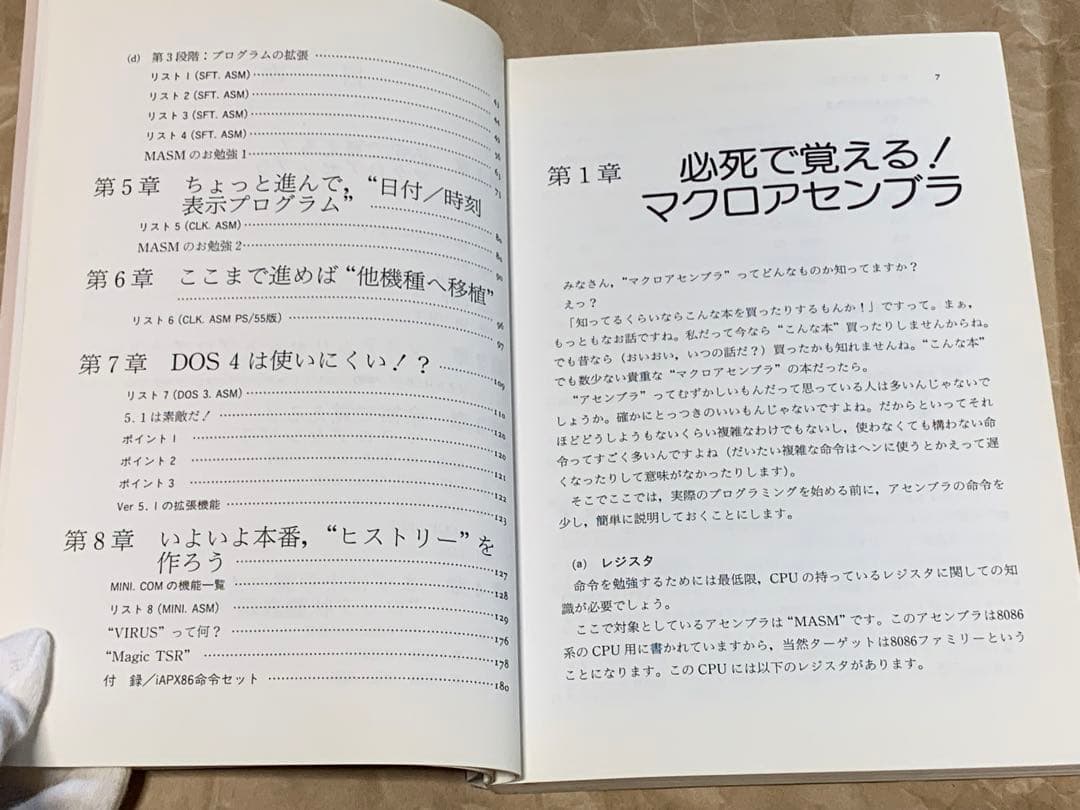 (d) 第3段階：プログラムの拡張
リスト1 (SFT. ASM) 43
リスト2 (SFT. ASM) 44
リスト3 (SFT. ASM) 45
リスト4 (SFT. ASM) 56
MASMのお勉強1 61
第5章 ちょっと進んで，“日付／時刻 73
表示プログラム”
リスト5 (CLK. ASM) 80
MASMのお勉強2 80
第6章 ここまで進めば“他機種へ移植” 90
96
リスト6 (CLK. ASM PS/55版) 97
第7章 DOS 4は使いにくい！？ 109
リスト7 (DOS 3. ASM) 110
5. 1は素敵だ！ 120
ポイント1 120
ポイント2 121
ポイント3 122
Ver 5. 1の拡張機能 123
第8章 いよいよ本番，“ヒストリー”を
作ろう 127
MINI. COMの機能一覧 128
リスト8 (MINI. ASM) 129
“VIRUS”って何？ 176
“Magic TSR” 178
付 録／iAPX86命令セット 180
7
第1章 必死で覚える！
マクロアセンブラ
みなさん，“マクロアセンブラ”ってどんなものか知ってますか？
えっ？
「知ってるくらいならこんな本を買ったりするもんか！」ですって。まぁ，
もっともなお話ですね。私だって今なら“こんな本”買ったりしませんからね。
でも昔なら（おいおい，いつの話だ？）買ったかも知れませんね。“こんな本”
でも数少ない貴重な“マクロアセンブラ”の本だったら。
“アセンブラ”ってむずかしいもんだって思っている人は多いんじゃないで
しょうか。確かにとっつきのいいもんじゃないですよね。だからといってそれ
ほどどうしようもないくらい複雑なわけでもないし，使わなくても構わない命
令ってすごく多いんですよね（だいたい複雑な命令はヘンに使うとかえって遅
くなったりして意味がなかったりします）。
そこでここでは，実際のプログラミングを始める前に，アセンブラの命令を
少し，簡単に説明しておくことにします。
(a) レジスタ
命令を勉強するためには最低限，CPUの持っているレジスタに関しての知
識が必要でしょう。
ここで対象としているアセンブラは“MASM”です。このアセンブラは8086
系のCPU用に書かれていますから，当然ターゲットは8086ファミリーという
ことになります。このCPUには以下のレジスタがあります。